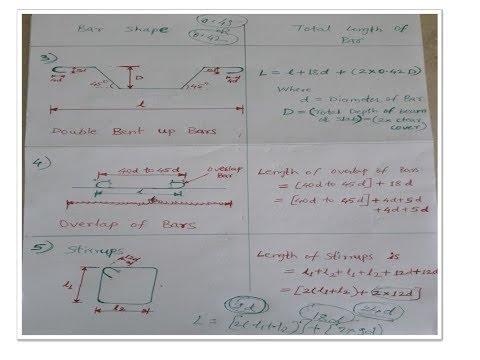 Bar Shape
0.43
OR
0.42
Total Length of
Bar
3)
4d
D
45°
45°
4d
l
Double Bent up Bars
L = l + 18d + (2x0.42D)
Where
d = Diameter of Bar
D = (Total Depth of beam
or slab) - (2x clear
cover)
4)
40d to 45d
overlap
Bar
l
Overlap of Bars
Length of overlap of Bars
= [40d to 45d] + 18d
= [40d to 45d] + 4d + 5d
+ 4d + 5d
5) Stirrups
12d
l1
l2
Length of Stirrups is
= l1 + l2 + l1 + l2 + 12d + 12d
= [2(l1+l2) + 2x12d]
9d
18d
24d
L = [2(l1+l2)] + [2x9d]